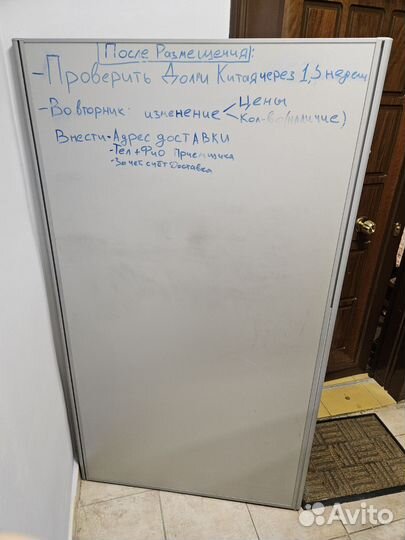 После Размещения:
- Проверить Долги Китая через 1,5 недели
- Во вторник: изменение < Цены
Кол-во (наличие)
Внести - Адрес доставки
- Тел + Фио Приемщика
- За чей счёт Доставка
Avito